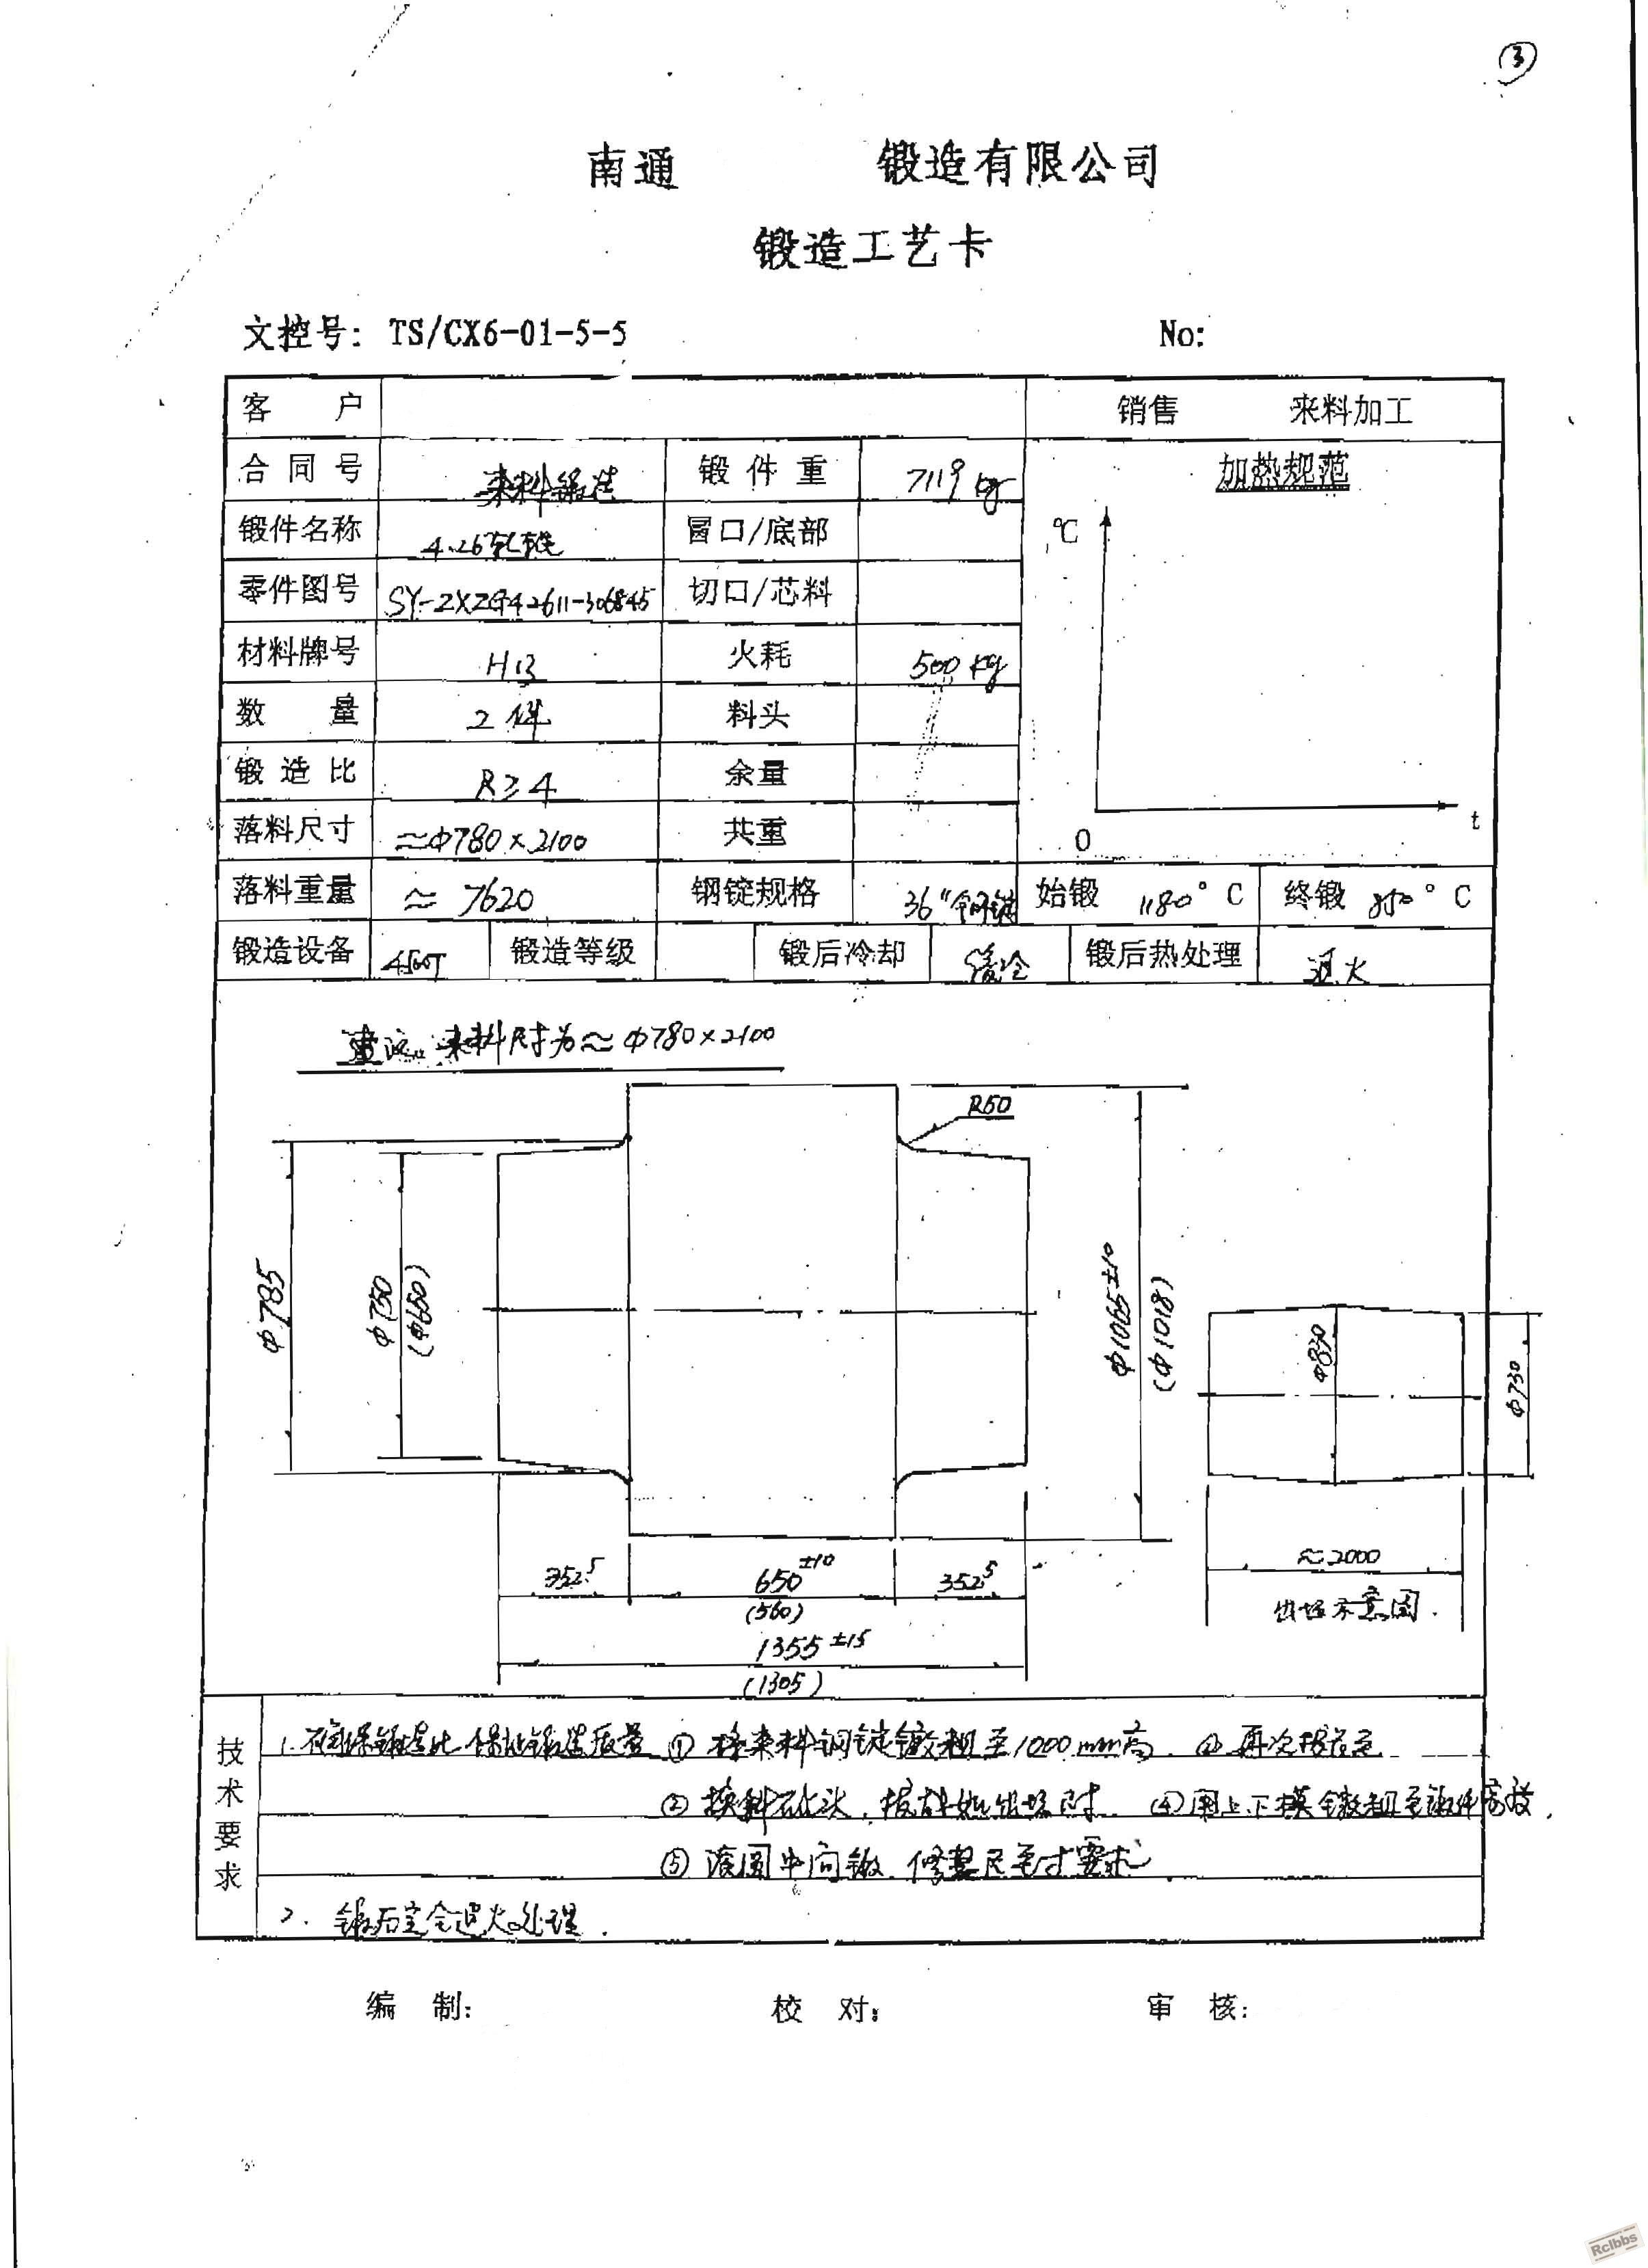 ③
南通 锻造有限公司
锻造工艺卡
文控号: TS/CX6-01-5-5 No:
客 户 销售 来料加工
合同号 来料锻造 锻件重 7119 kg 加热规范
锻件名称 4.26轧辊 冒口/底部 ℃
零件图号 SY-ZXZG42611-306845 切口/芯料
材料牌号 H13 火耗 500 kg
数 量 2件 料头
锻造比 R≥4 余量
落料尺寸 ≈Φ780×2100 共重 0 t
落料重量 ≈7620 钢锭规格 36"钢锭 始锻 1180°C 终锻 850°C
锻造设备 4500T 锻造等级 锻后冷却 缓冷 锻后热处理 退火
建议来料尺寸为≈Φ780×2100
R50
Φ785
Φ750
(Φ650)
Φ1065±10
(Φ1018)
Φ830
Φ730
352.5 650±10 352.5
(560)
1355±15
(1305)
≈2000
出坯示意图.
技术要求
1. 确保锻造比 保证锻造质量 ① 将来料钢锭镦粗至1000mm高. 再次拔长至
② 拔料 出坯尺寸. ④ 用上下模镦粗至锻件高度.
⑤ 滚圆中间 修整尺寸至要求
2. 锻后完全退火处理.
编 制: 校 对: 审 核:
Rclbbs